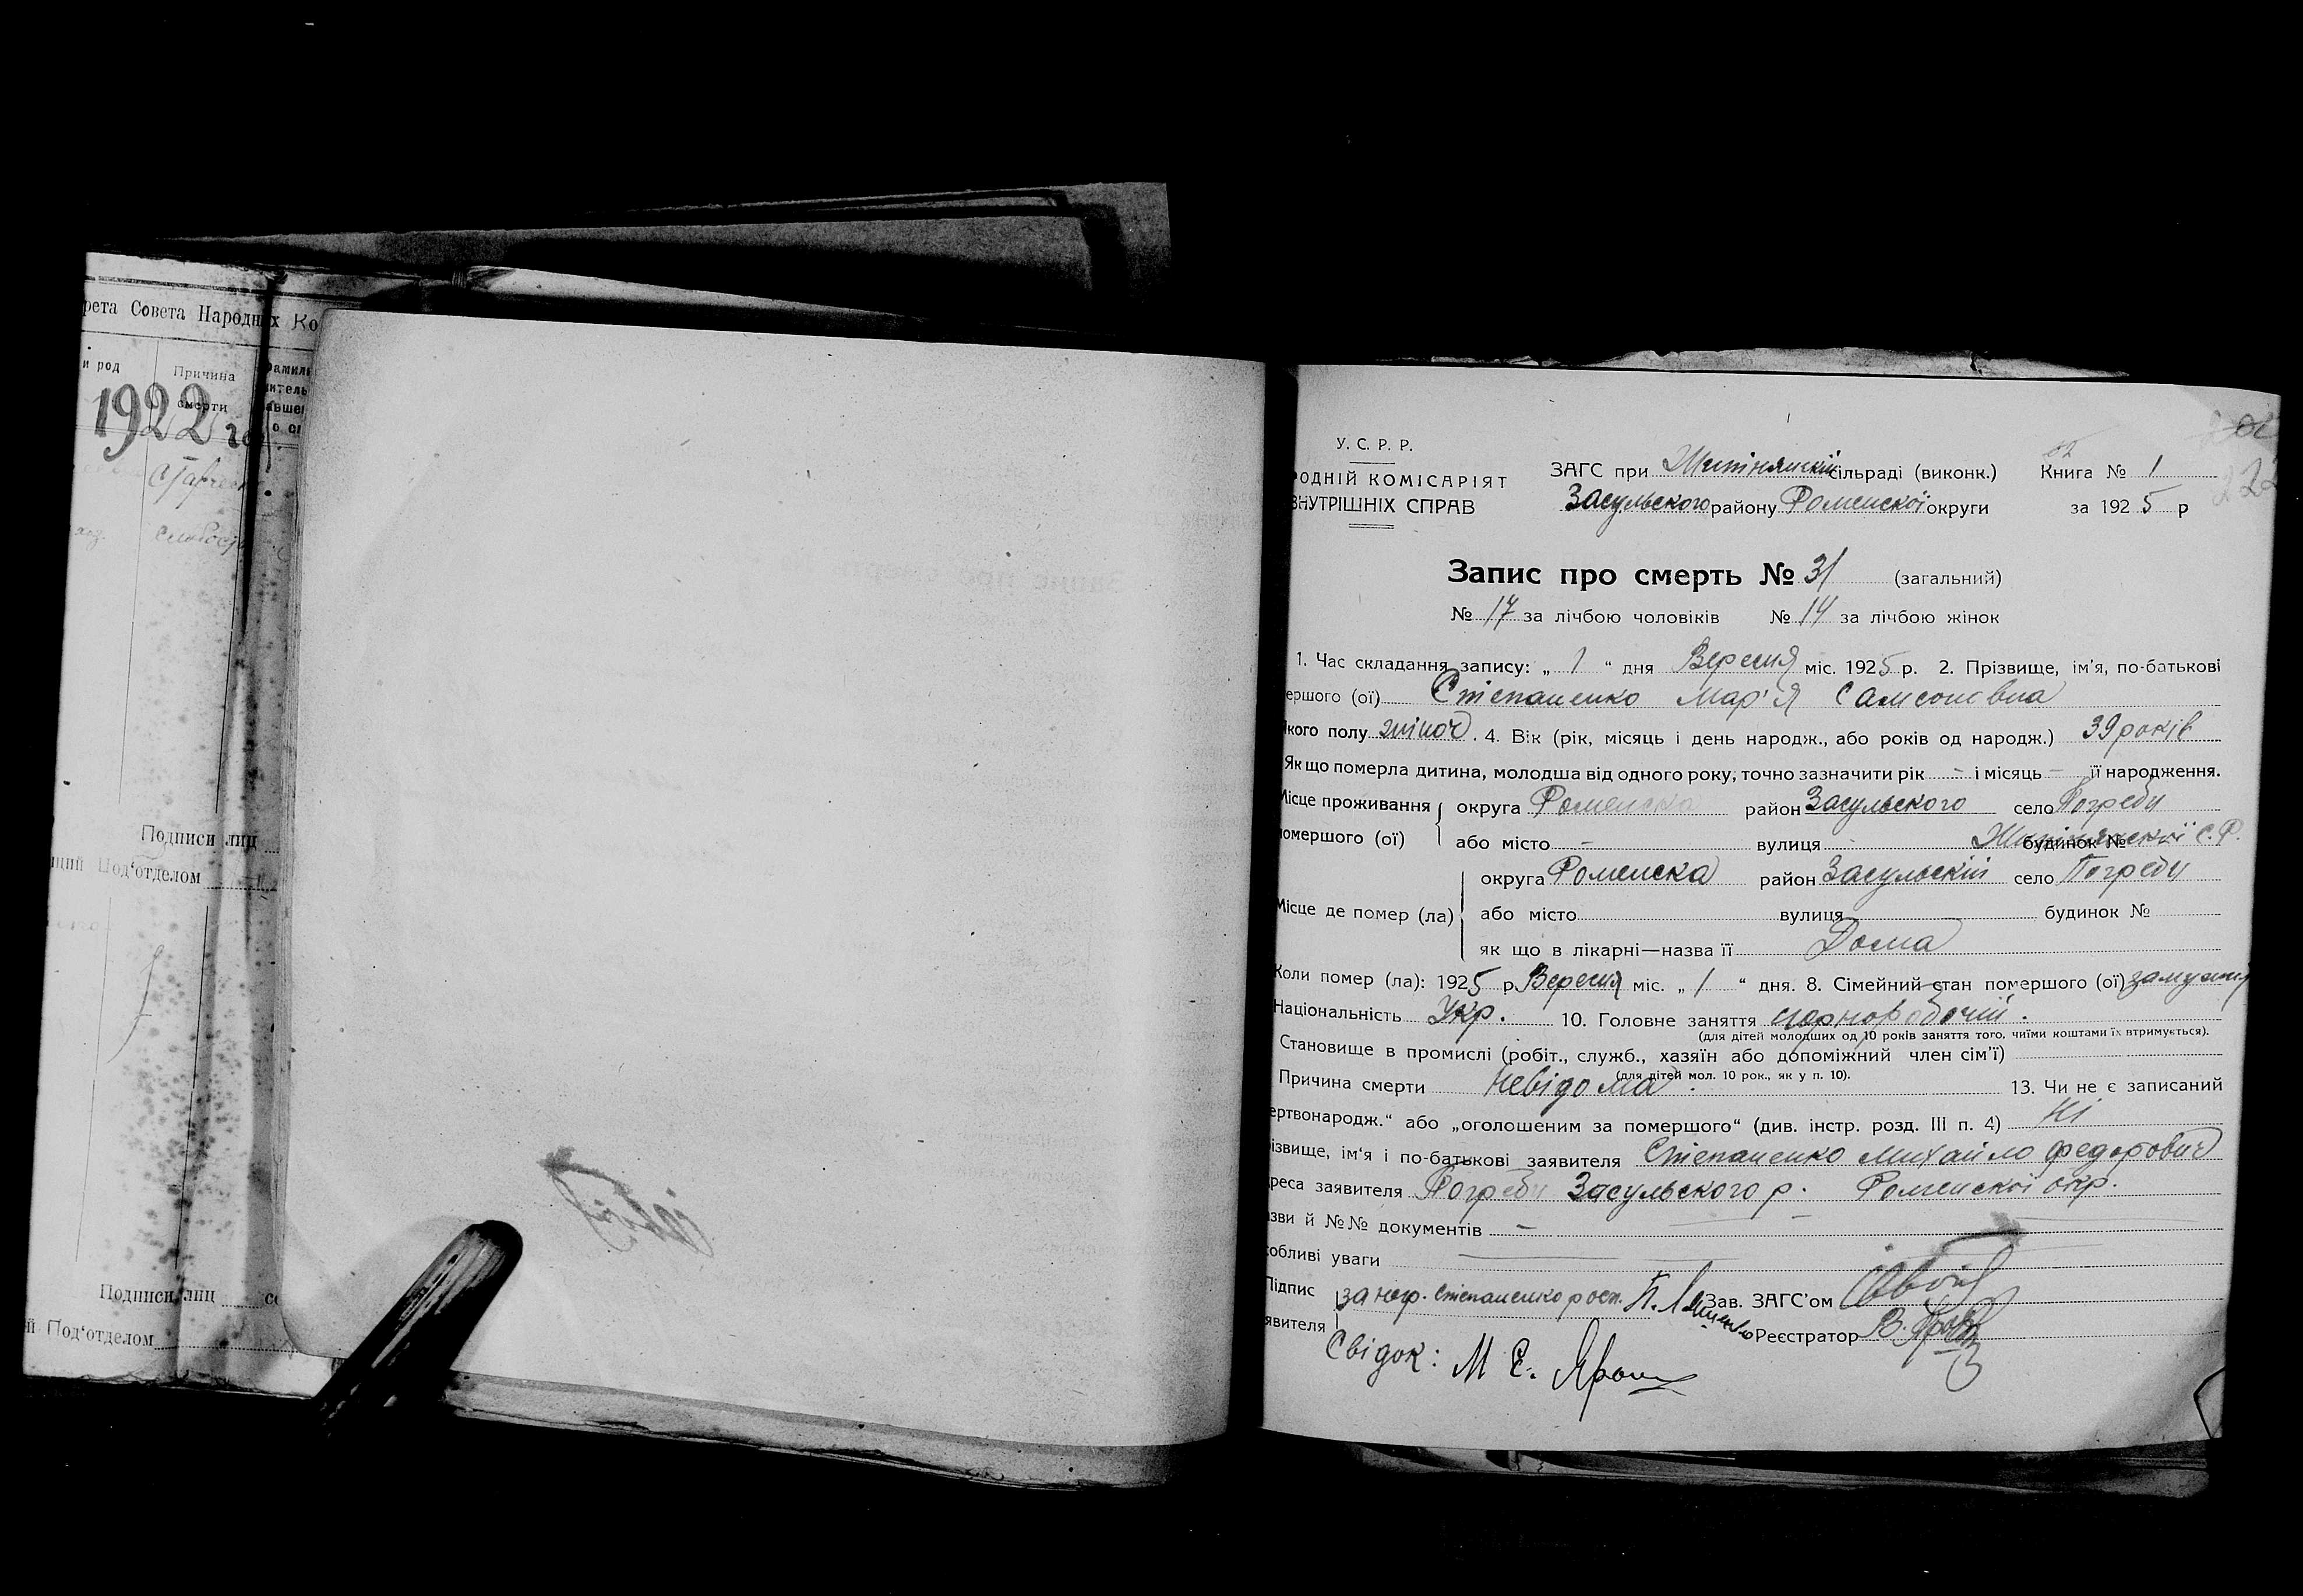 рета Совета Народных Ко
и род
Причина
смерти
1922 го
Подписи лиц
Под'отделом
Подписи лиц
й Под'отделом
У. С. Р. Р.
РОДНІЙ КОМІСАРІЯТ
ВНУТРІШНІХ СПРАВ
ЗАГС при сільраді (виконк.) Книга № 1
Засульского району Роменскої округи за 1925 р
Запис про смерть № 31 (загальний)
№ 17 за лічбою чоловіків № 14 за лічбою жінок
1. Час складання запису: „ 1 “ дня Вересня міс. 1925 р. 2. Прізвище, ім'я, по-батькові
ершого (ої) Степаненко Мар'я Самсоновна
кого полу жіноч. 4. Вік (рік, місяць і день народж., або років од народж.) 39 років
Як що померла дитина, молодша від одного року, точно зазначити рік - і місяць - її народження.
Місце проживання округа Роменска район Засульского село Погреби
помершого (ої) або місто - вулиця будинок № С.Р.
округа Роменска район Засульскій село Погреби
Місце де помер (ла) або місто вулиця будинок №
як що в лікарні—назва її Дома
Коли помер (ла): 1925 р Вересня міс. „ 1 “ дня. 8. Сімейний стан помершого (ої) замужня
Національність Укр. 10. Головне заняття чорноробочій.
(для дітей молодших од 10 років заняття того, чиїми коштами їх втримується).
Становище в промислі (робіт., служб., хазяїн або допоміжний член сім'ї)
(для дітей мол. 10 рок., як у п. 10).
Причина смерти Невідома. 13. Чи не є записаний
ертвонародж.“ або „оголошеним за помершого“ (див. інстр. розд. III п. 4) Ні
ізвище, ім'я і по-батькові заявителя Степаненко Михайло Федорович
реса заявителя Погреби Засульского р. Роменскої окр.
зви й №№ документів -
обливі уваги
Підпис за неф. Степаненко росп. Зав. ЗАГС'ом
явителя Реєстратор В.
Свідок: М Є.